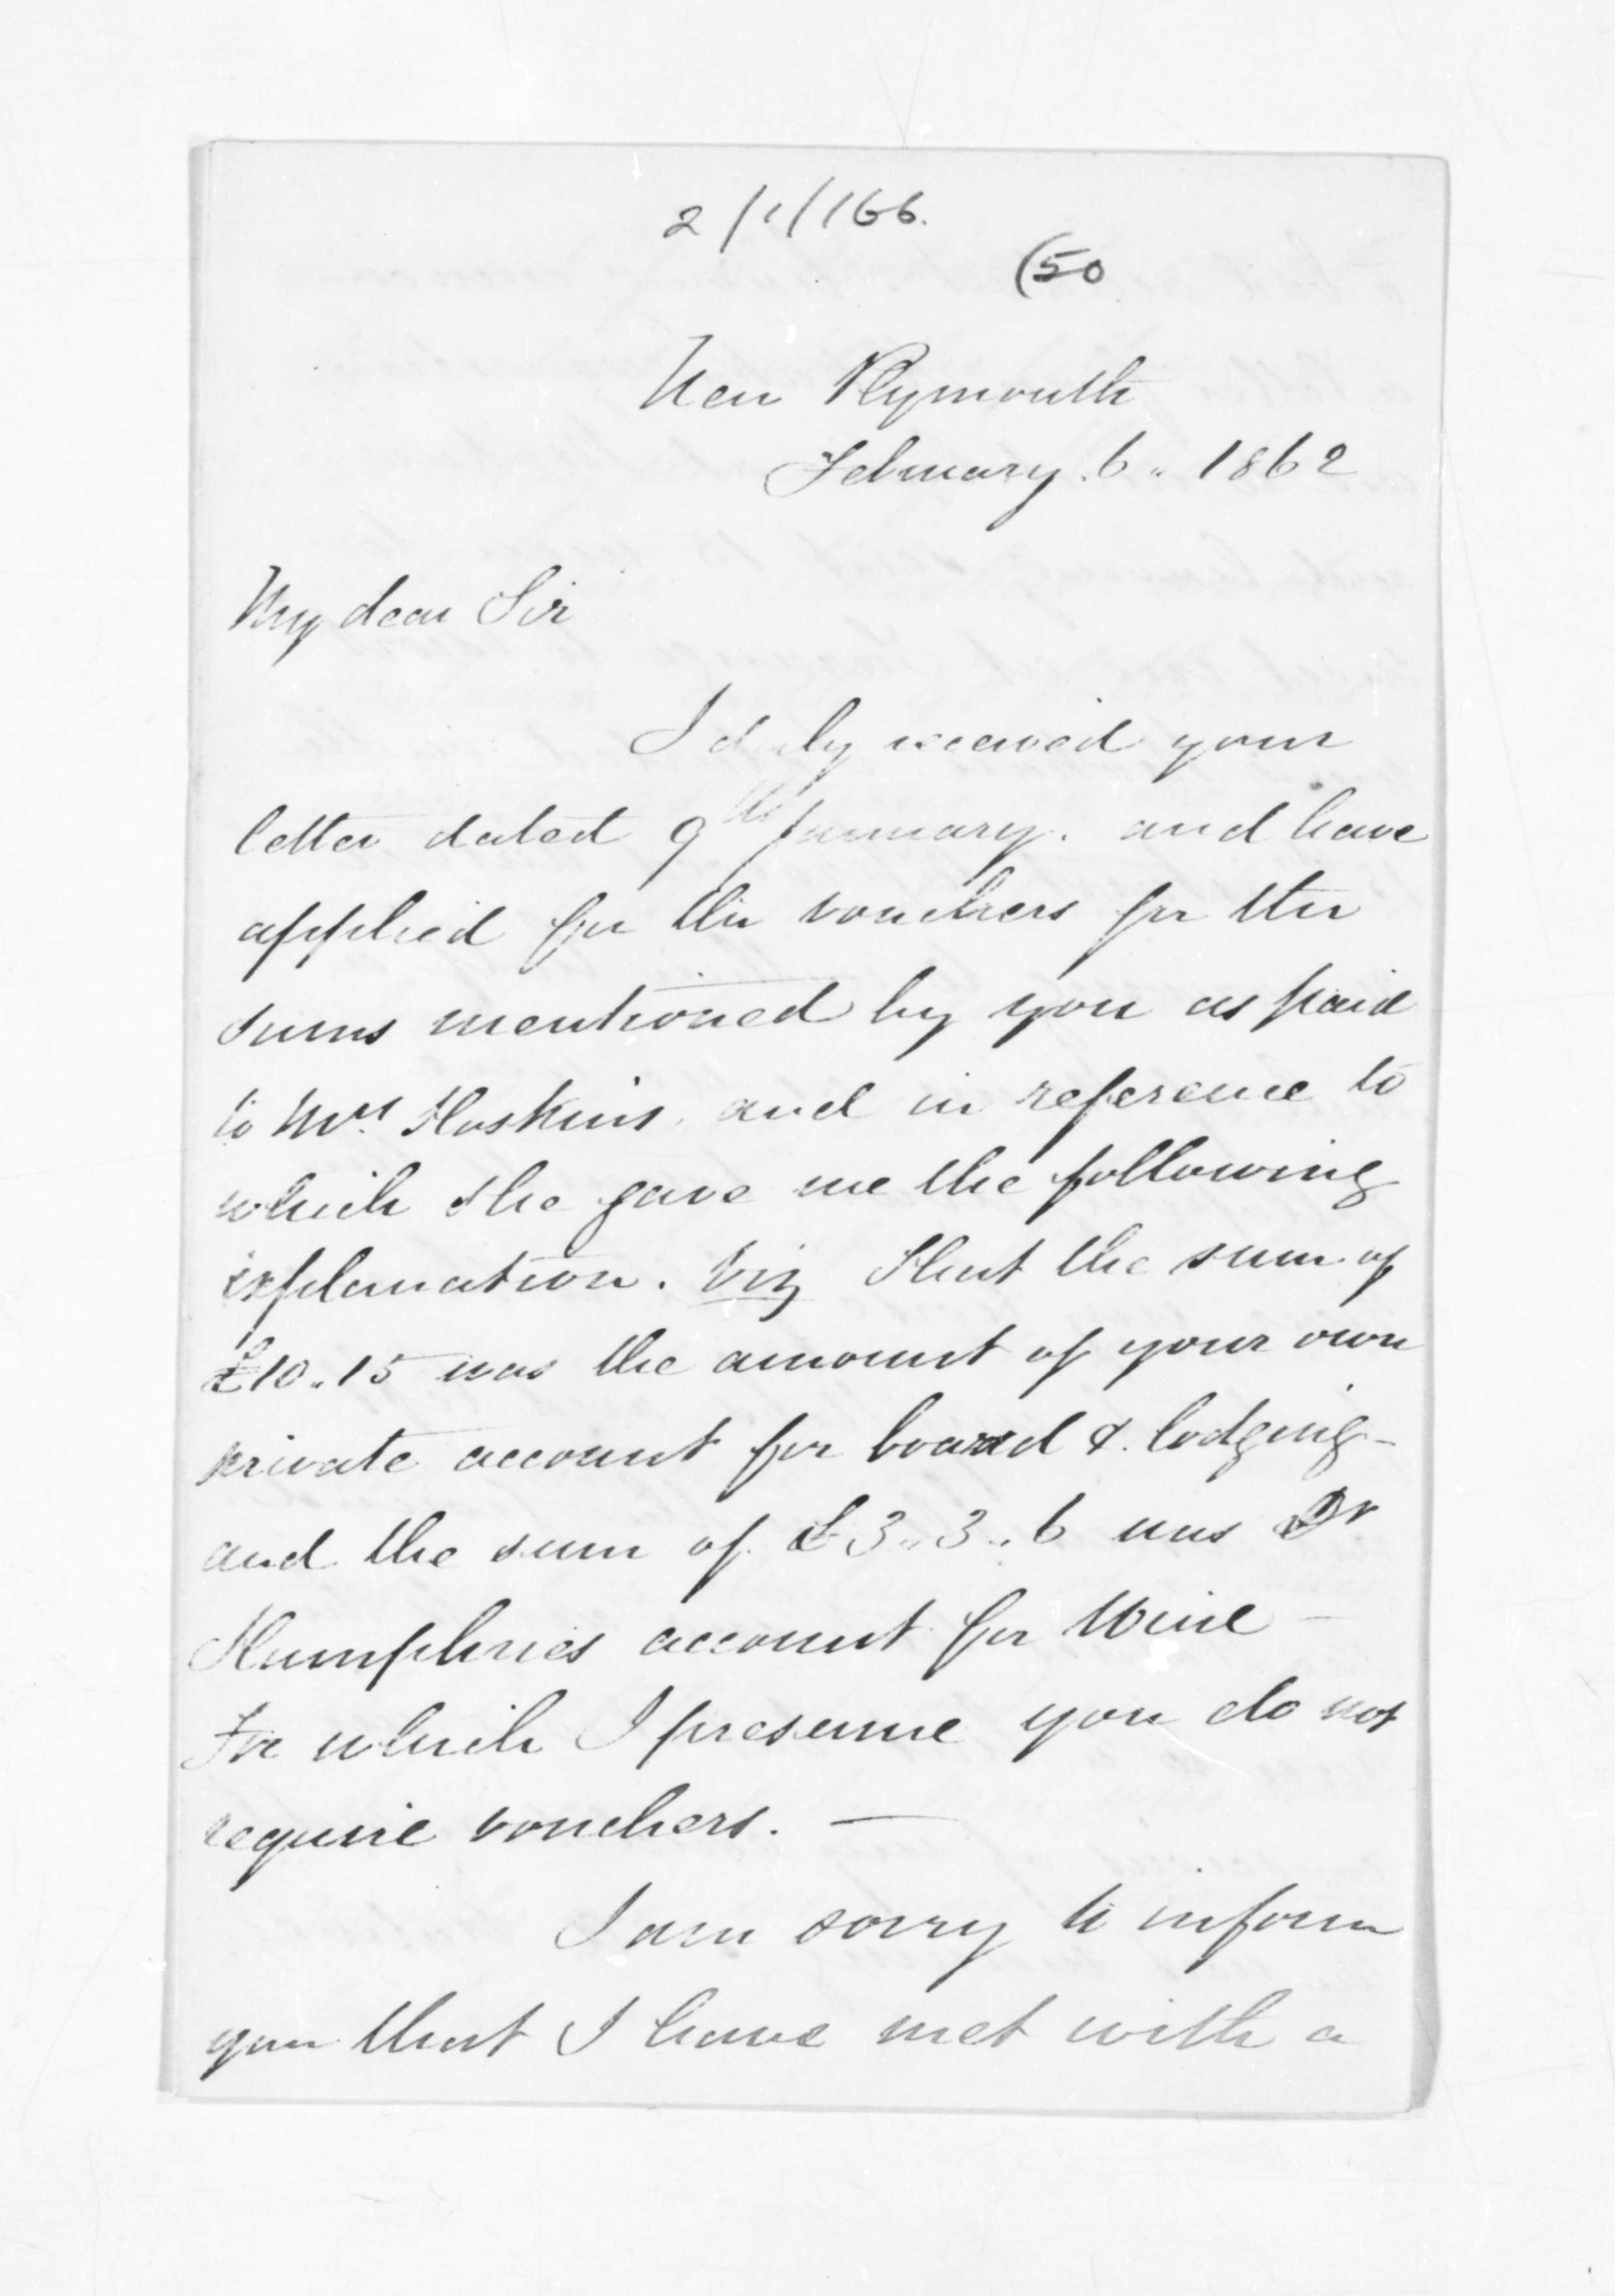 2/1/166.
(50
New Plymouth
February. 6.. 1862
My dear Sir
I duly received your
letter dated 9th January. and have
applied for the vouchers for the
sums mentioned by you as paid
to Mrs Hoskins, and in reference to
which she gave me the following
explanation. Viz That the sum of
£10..15 was the amount of your own
private account for board & lodging -
and the sum of £3..3..6 was Dr
Humphries account for Wine -
For which I presume you do not
require vouchers. —
I am sorry to inform
you that I have met with a